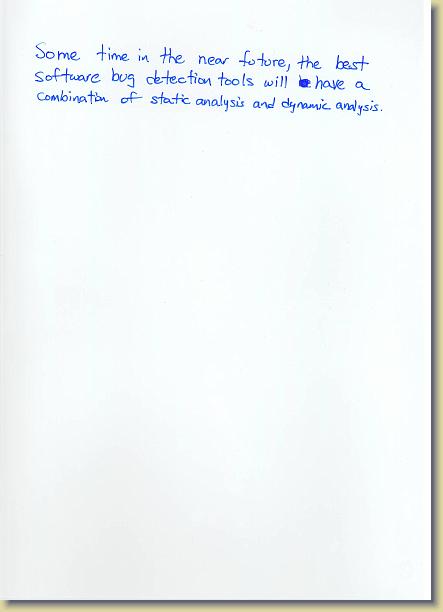 Some time in the near future, the best
software bug detection tools will have a
combination of static analysis and dynamic analysis.